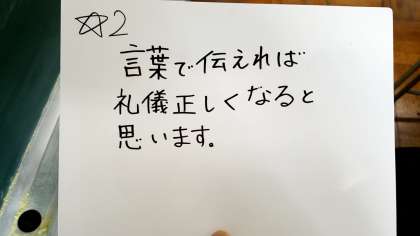 ☆2
言葉で伝えれば
礼儀正しくなると
思います。